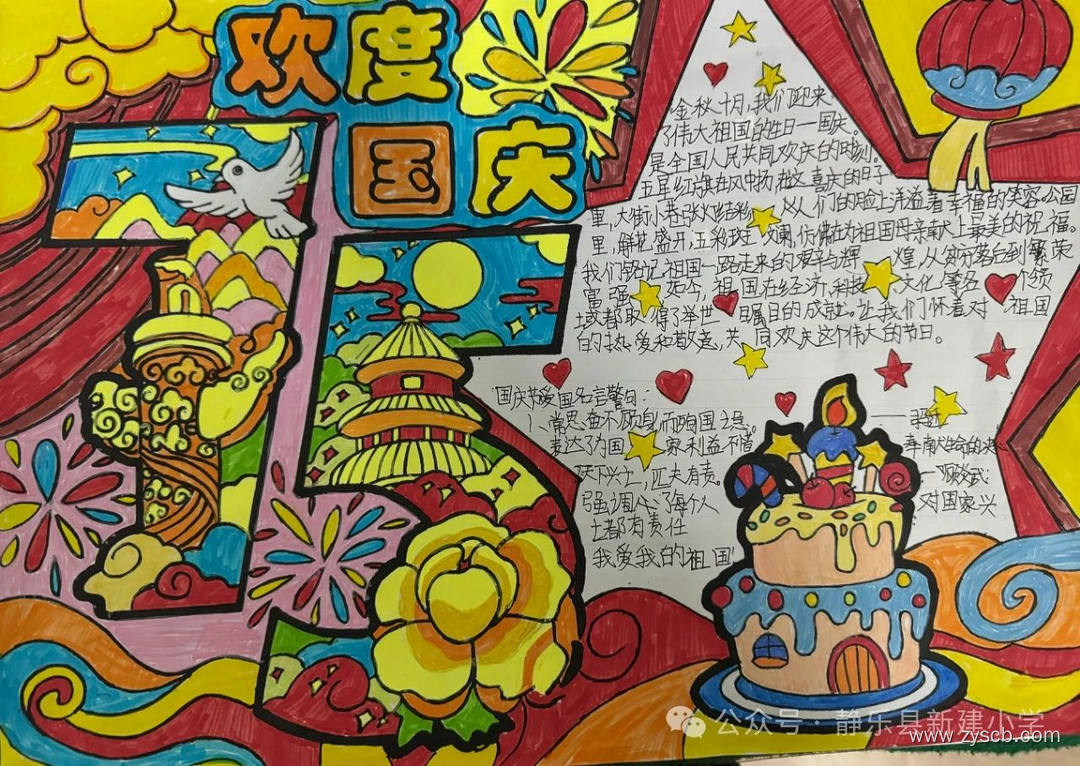 欢度
国庆
金秋十月,我们迎来
了伟大祖国的生日一国庆。
是全国人民共同欢庆的时刻。
五星红旗在风中扬,在这喜庆的日子
里,大街小巷张灯结彩,人们的脸上洋溢着幸福的笑容。公园
里,鲜花盛开,五彩斑斓,仿佛在为祖国母亲献上最美的祝福。
我们铭记祖国一路走来的艰辛与辉煌,从贫穷落后到繁荣
富强。如今,祖国在经济,科技,文化等各个领
域都取得了举世瞩目的成就。让我们怀着对祖国
的热爱和敬意,共同欢庆这个伟大的节日。
国庆节爱国名言警句:
1、常思奋不顾身,而殉国之急。
表达了为国家利益不惜
天下兴亡,匹夫有责。
强调了每个人
对国家兴
亡都有责任
我爱我的祖国
公众号·静乐县新建小学
www.zyscb.com